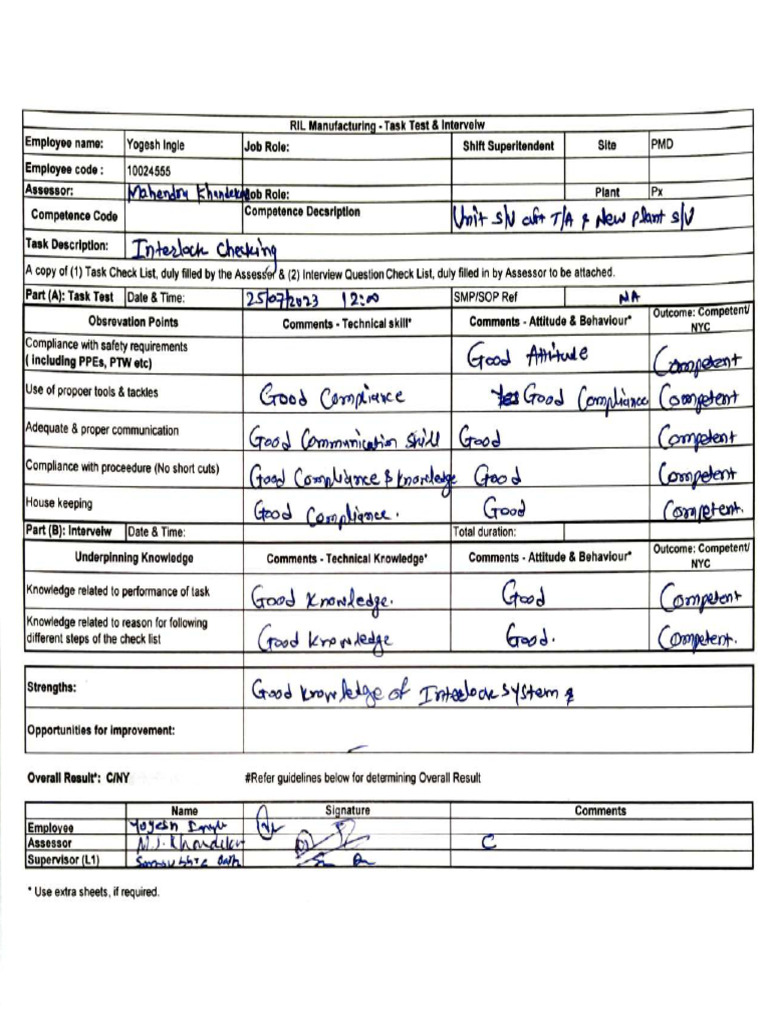 RIL Manufacturing - Task Test & Interveiw
Employee name: Yogesh Ingle Job Role: Shift Superitendent Site PMD
Employee code : 10024555
Assessor: Mahendra Khandekar Job Role: Plant Px
Competence Code Competence Decsription Unit S/U aft T/A & New Plant S/U
Task Description: Interlock Checking
A copy of (1) Task Check List, duly filled by the Assessor & (2) Interview Question Check List, duly filled in by Assessor to be attached.
Part (A): Task Test Date & Time: 25/07/2023 12:00 SMP/SOP Ref NA
Obsrevation Points Comments - Technical skill* Comments - Attitude & Behaviour* Outcome: Competent/ NYC
Compliance with safety requirements
( including PPEs, PTW etc) Good Attitude Competent
Use of propoer tools & tackles Good Compliance Good Compliance Competent
Adequate & proper communication Good Communication Skill Good Competent
Compliance with proceedure (No short cuts) Good Compliance & knowledge Good Competent
House keeping Good Compliance. Good Competent.
Part (B): Interveiw Date & Time: Total duration:
Underpinning Knowledge Comments - Technical Knowledge* Comments - Attitude & Behaviour* Outcome: Competent/ NYC
Knowledge related to performance of task Good Knowledge. Good Competent
Knowledge related to reason for following
different steps of the check list Good Knowledge Good. Competent.
Strengths: Good knowledge of Interlock system &
Opportunities for improvement: -
Overall Result*: C/NY #Refer guidelines below for determining Overall Result
Name Signature Comments
Employee Yogesh Ingle
Assessor M.J. Khandekar C
Supervisor (L1)
* Use extra sheets, if required.